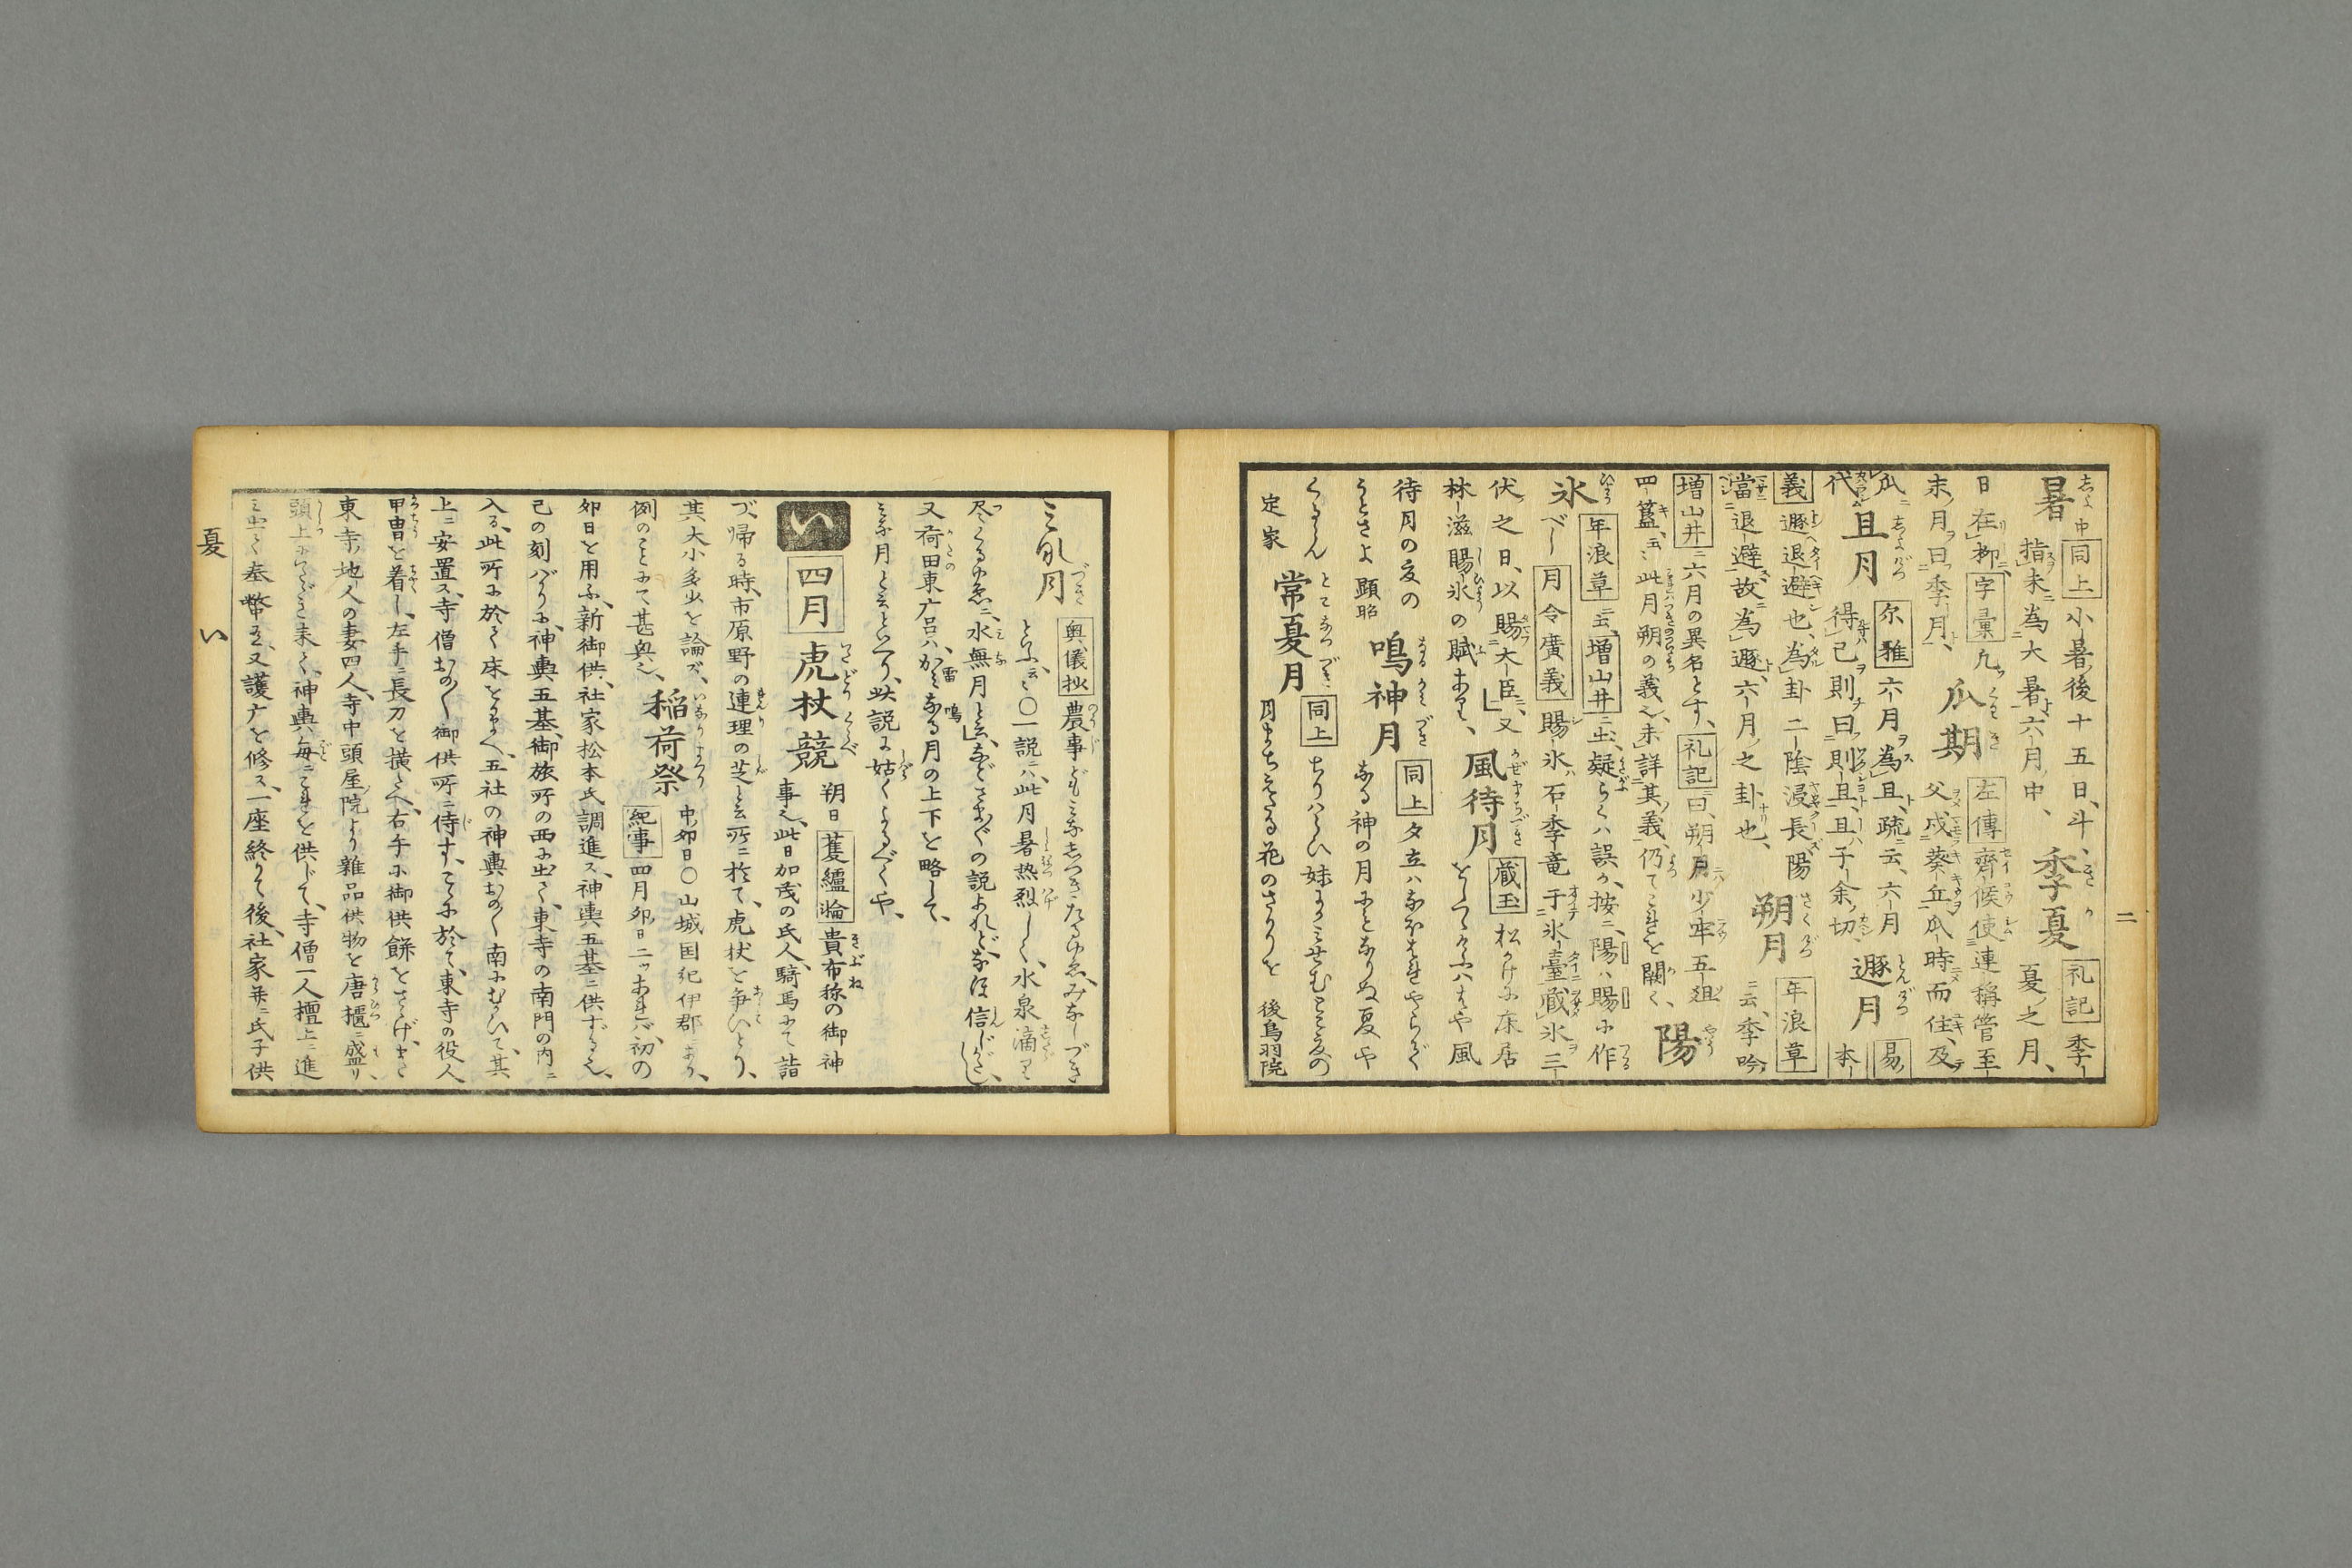 二
暑 中 同上 小暑後十五日、斗、季夏 礼記 季
指未為大暑、六月中、夏之月、
日在柳 字彙 凡 瓜期 左傳 齊候使連稱管至
末月曰季月、父戍葵丘瓜時而往、及
瓜代 且月 尓雅 六月為且、疏云、六月 遯月 易本
得己則曰則且、且子余切
義 遯退避也、為卦二陰浸長陽 朔月 年浪草
當退避、故為遯、六月之卦也、ニ云、季吟
増山井ニ六月の異名とす、礼記曰、朔月少牢五俎 陽
四簋、云々此月朔の義也、未詳其義、仍てこれを闕く、
氷 年浪草ニ云、増山井ニ出、疑らくハ誤か、按ニ、陽ハ賜に作
べし 月令廣義 賜氷ハ石季竜于氷臺藏氷三
伏之日、以賜大臣、又 風待月 蔵玉 松かけに床居
林滋賜氷の賦あり、をしつゝけふハはや風
待月の夏の 鳴神月 同上 夕立ハなほはれやらで
うとさよ 顕昭 なる神の月にとなりぬ夏や
くるらん とこなつづき
定家 常夏月 同上 ちりハらい妹にみせむとこ夏の
月まちえたる花のさかりを 後鳥羽院
三永月 奥儀抄 農事どもみなしつきたるゆゑ、みなしづき
といふ、云々〇一説ニハ、此月暑热烈しく、水泉滴り
尽くるゆゑニ、水無月と云、などさまざまの説あれど、なほ信じがたし、
又荷田東广呂ハ、かみなる月の上下を略して、
みな月と云といへり、此説に姑くよるべくや、
い 四月 虎杖競 朔日 䕶纑淪 貴布祢の御神
事也、此日加茂の氏人、騎馬にて詣
づ、帰る時、市原野の連理の芝と云所ニ於て、虎杖を争いとり、
其大小多少を論ズ、稲荷祭 中卯日〇山城国紀伊郡にあり、
例のことにて甚興也、紀事 四月卯日二ッあれバ、初の
卯日を用ふ、新御供、社家松本氏調進ス、神輿五基ニ供ずる也、
己の刻バかりに、神輿五基、御旅所の西に出て、東寺の南門の内ニ
入る、此所に於て床をまうく、五社の神輿おの〱南にむかいて、其
上ニ安置ス、寺僧おの〱御供所ニ侍す、こゝに於て、東寺の役人
甲冑を着し、左手ニ長刀を横たへ、右手に御供餅をさゝげ、まさ
東寺ノ地人の妻四人、寺中頭屋院より雜品供物を唐櫃ニ盛リ、
頭上にいたゞき来て、神輿毎ニこれを供じて、寺僧一人檀上ニ進
ミ出て奉幣す、又護广を修ス、一座終りて後、社家并ニ氏子供
夏 い